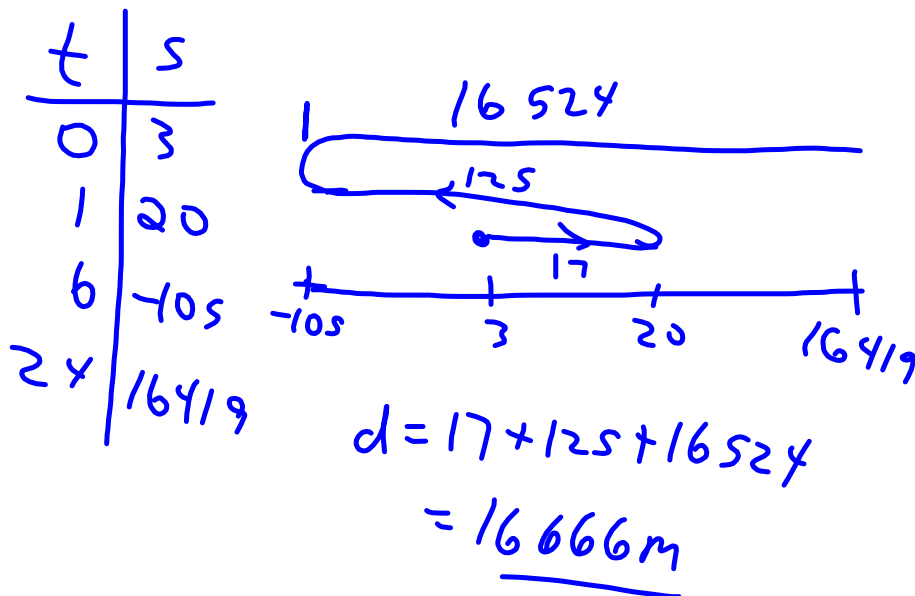 t s
0 3
1 20
6 -105
24 16419
16 524
125
17
-105 3 20 16419
d = 17 + 125 + 16 524
= 16 666 m